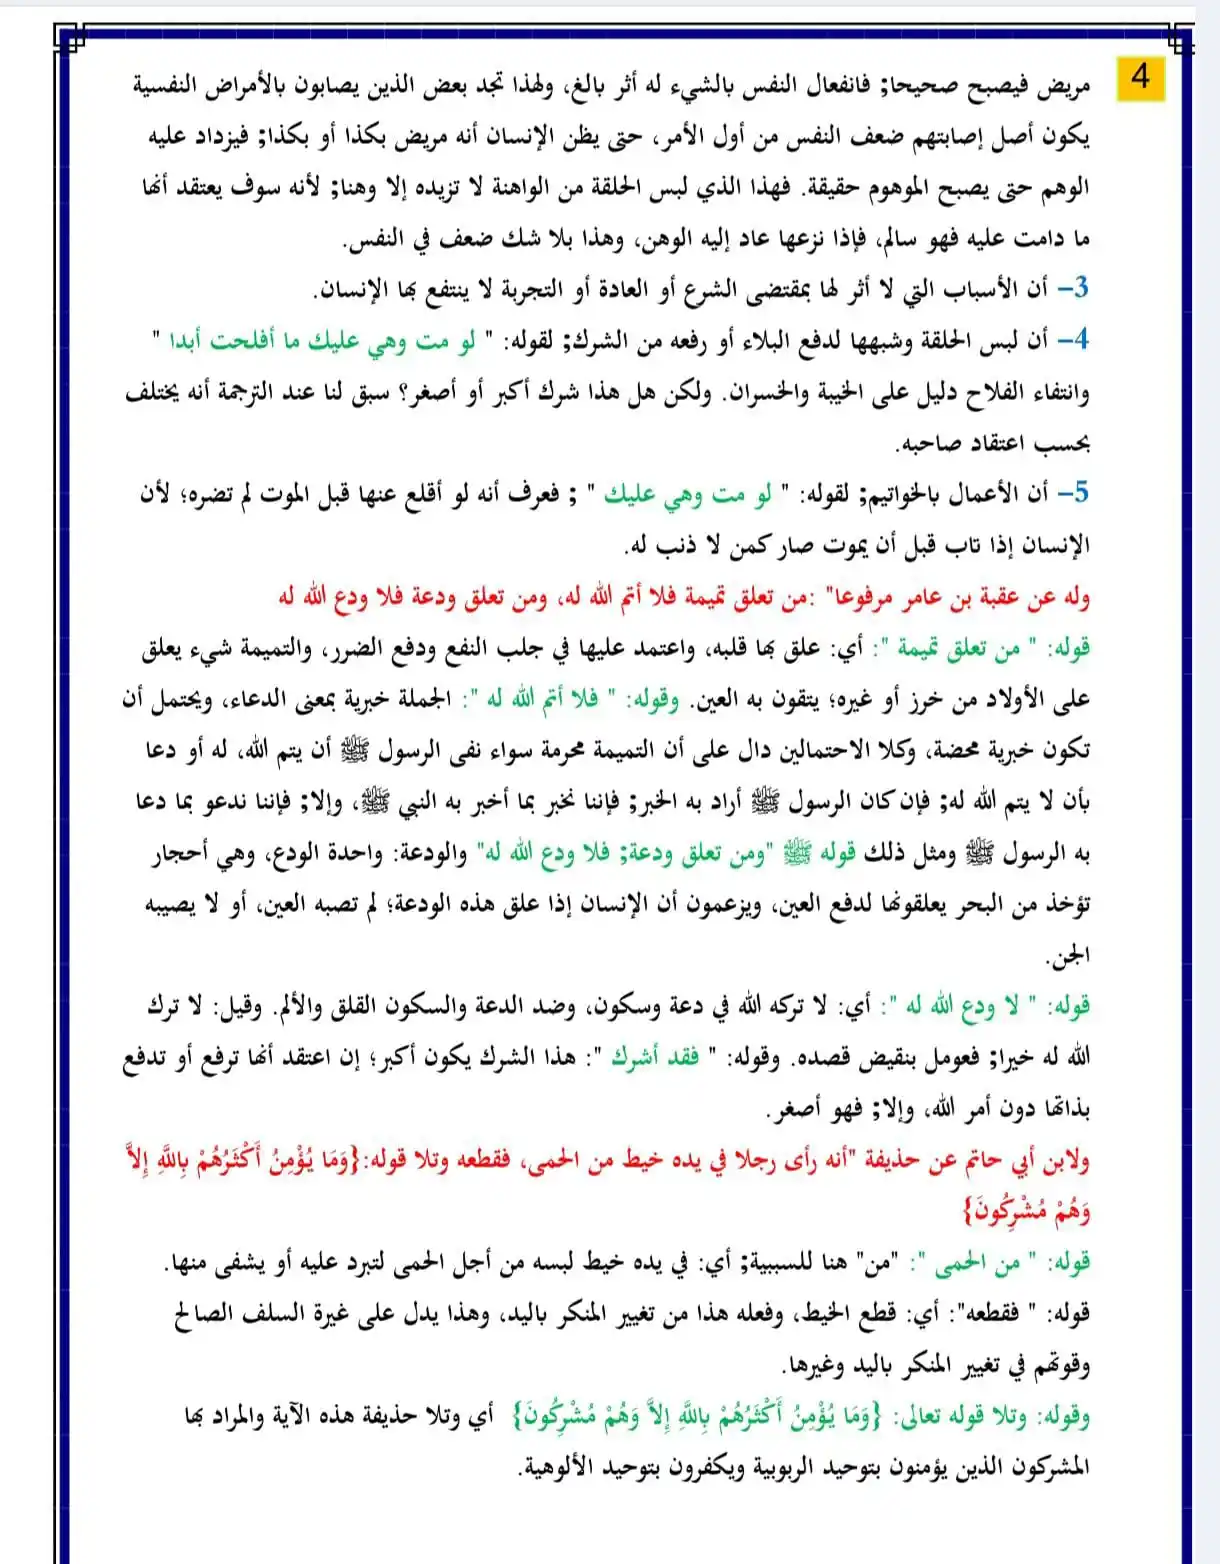 4
مريض فيصبح صحيحا; فانفعال النفس بالشيء له أثر بالغ، ولهذا تجد بعض الذين يصابون بالأمراض النفسية
يكون أصل إصابتهم ضعف النفس من أول الأمر، حتى يظن الإنسان أنه مريض بكذا أو بكذا; فيزداد عليه
الوهم حتى يصبح الموهوم حقيقة. فهذا الذي لبس الحلقة من الواهنة لا تزيده إلا وهنا; لأنه سوف يعتقد أنها
ما دامت عليه فهو سالم، فإذا نزعها عاد إليه الوهن، وهذا بلا شك ضعف في النفس.
3- أن الأسباب التي لا أثر لها بمقتضى الشرع أو العادة أو التجربة لا ينتفع بها الإنسان.
4- أن لبس الحلقة وشبهها لدفع البلاء أو رفعه من الشرك; لقوله: " لو مت وهي عليك ما أفلحت أبدا "
وانتفاء الفلاح دليل على الخيبة والخسران. ولكن هل هذا شرك أكبر أو أصغر؟ سبق لنا عند الترجمة أنه يختلف
بحسب اعتقاد صاحبه.
5- أن الأعمال بالخواتيم; لقوله: " لو مت وهي عليك " ; فعرف أنه لو أقلع عنها قبل الموت لم تضره؛ لأن
الإنسان إذا تاب قبل أن يموت صار كمن لا ذنب له.
وله عن عقبة بن عامر مرفوعا" :من تعلق تميمة فلا أتم الله له، ومن تعلق ودعة فلا ودع الله له
قوله: " من تعلق تميمة ": أي: علق بها قلبه، واعتمد عليها في جلب النفع ودفع الضرر، والتميمة شيء يعلق
على الأولاد من خرز أو غيره؛ يتقون به العين. وقوله: " فلا أتم الله له ": الجملة خبرية بمعنى الدعاء، ويحتمل أن
تكون خبرية محضة، وكلا الاحتمالين دال على أن التميمة محرمة سواء نفى الرسول ﷺ أن يتم الله، له أو دعا
بأن لا يتم الله له; فإن كان الرسول ﷺ أراد به الخبر; فإننا نخبر بما أخبر به النبي ﷺ، وإلا; فإننا ندعو بما دعا
به الرسول ﷺ ومثل ذلك قوله ﷺ "ومن تعلق ودعة; فلا ودع الله له" والودعة: واحدة الودع، وهي أحجار
تؤخذ من البحر يعلقونها لدفع العين، ويزعمون أن الإنسان إذا علق هذه الودعة؛ لم تصبه العين، أو لا يصيبه
الجن.
قوله: " لا ودع الله له ": أي: لا تركه الله في دعة وسكون، وضد الدعة والسكون القلق والألم. وقيل: لا ترك
الله له خيرا; فعومل بنقيض قصده. وقوله: " فقد أشرك ": هذا الشرك يكون أكبر؛ إن اعتقد أنها ترفع أو تدفع
بذاتها دون أمر الله، وإلا; فهو أصغر.
ولابن أبي حاتم عن حذيفة "أنه رأى رجلا في يده خيط من الحمى، فقطعه وتلا قوله:{وَمَا يُؤْمِنُ أَكْثَرُهُمْ بِاللَّهِ إِلاَّ
وَهُمْ مُشْرِكُونَ}
قوله: " من الحمى ": "من" هنا للسببية; أي: في يده خيط لبسه من أجل الحمى لتبرد عليه أو يشفى منها.
قوله: " فقطعه": أي: قطع الخيط، وفعله هذا من تغيير المنكر باليد، وهذا يدل على غيرة السلف الصالح
وقوتهم في تغيير المنكر باليد وغيرها.
وقوله: وتلا قوله تعالى: {وَمَا يُؤْمِنُ أَكْثَرُهُمْ بِاللَّهِ إِلاَّ وَهُمْ مُشْرِكُونَ} أي وتلا حذيفة هذه الآية والمراد بها
المشركون الذين يؤمنون بتوحيد الربوبية ويكفرون بتوحيد الألوهية.